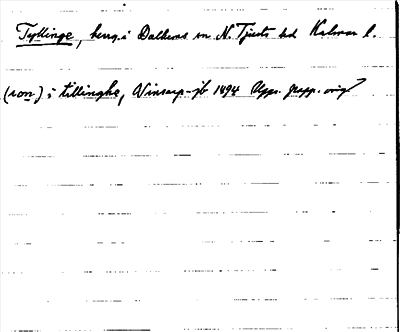 Tyllinge, herrg. i Dalhems sn N. Tjusts hd Kalmar l.
(von) i tillinghe, Vinsarp-jb 1494 Upps. papp. orig